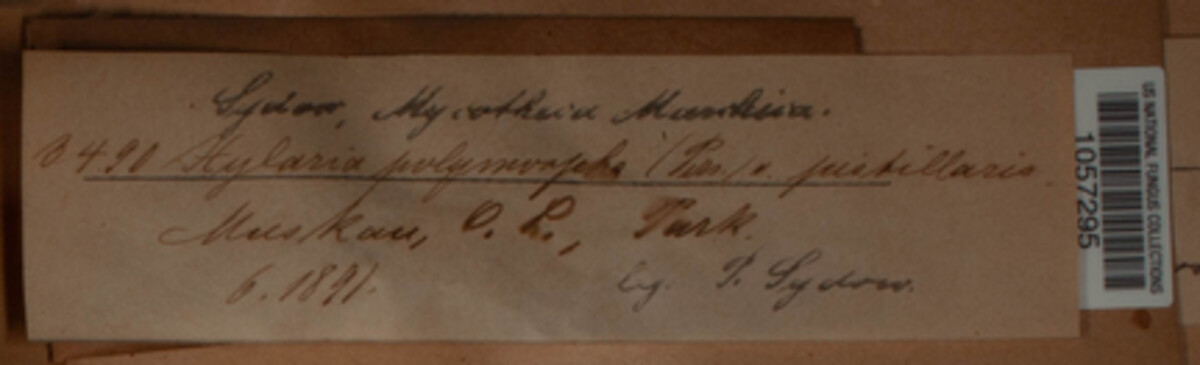 Sydow, Mycotheca Marchica.
3490 Xylaria polymorpha (Pers.) v. pistillaris.
Muskau, O. L., Park.
6. 1891.
leg. P. Sydow.
US NATIONAL FUNGUS COLLECTIONS
1057295